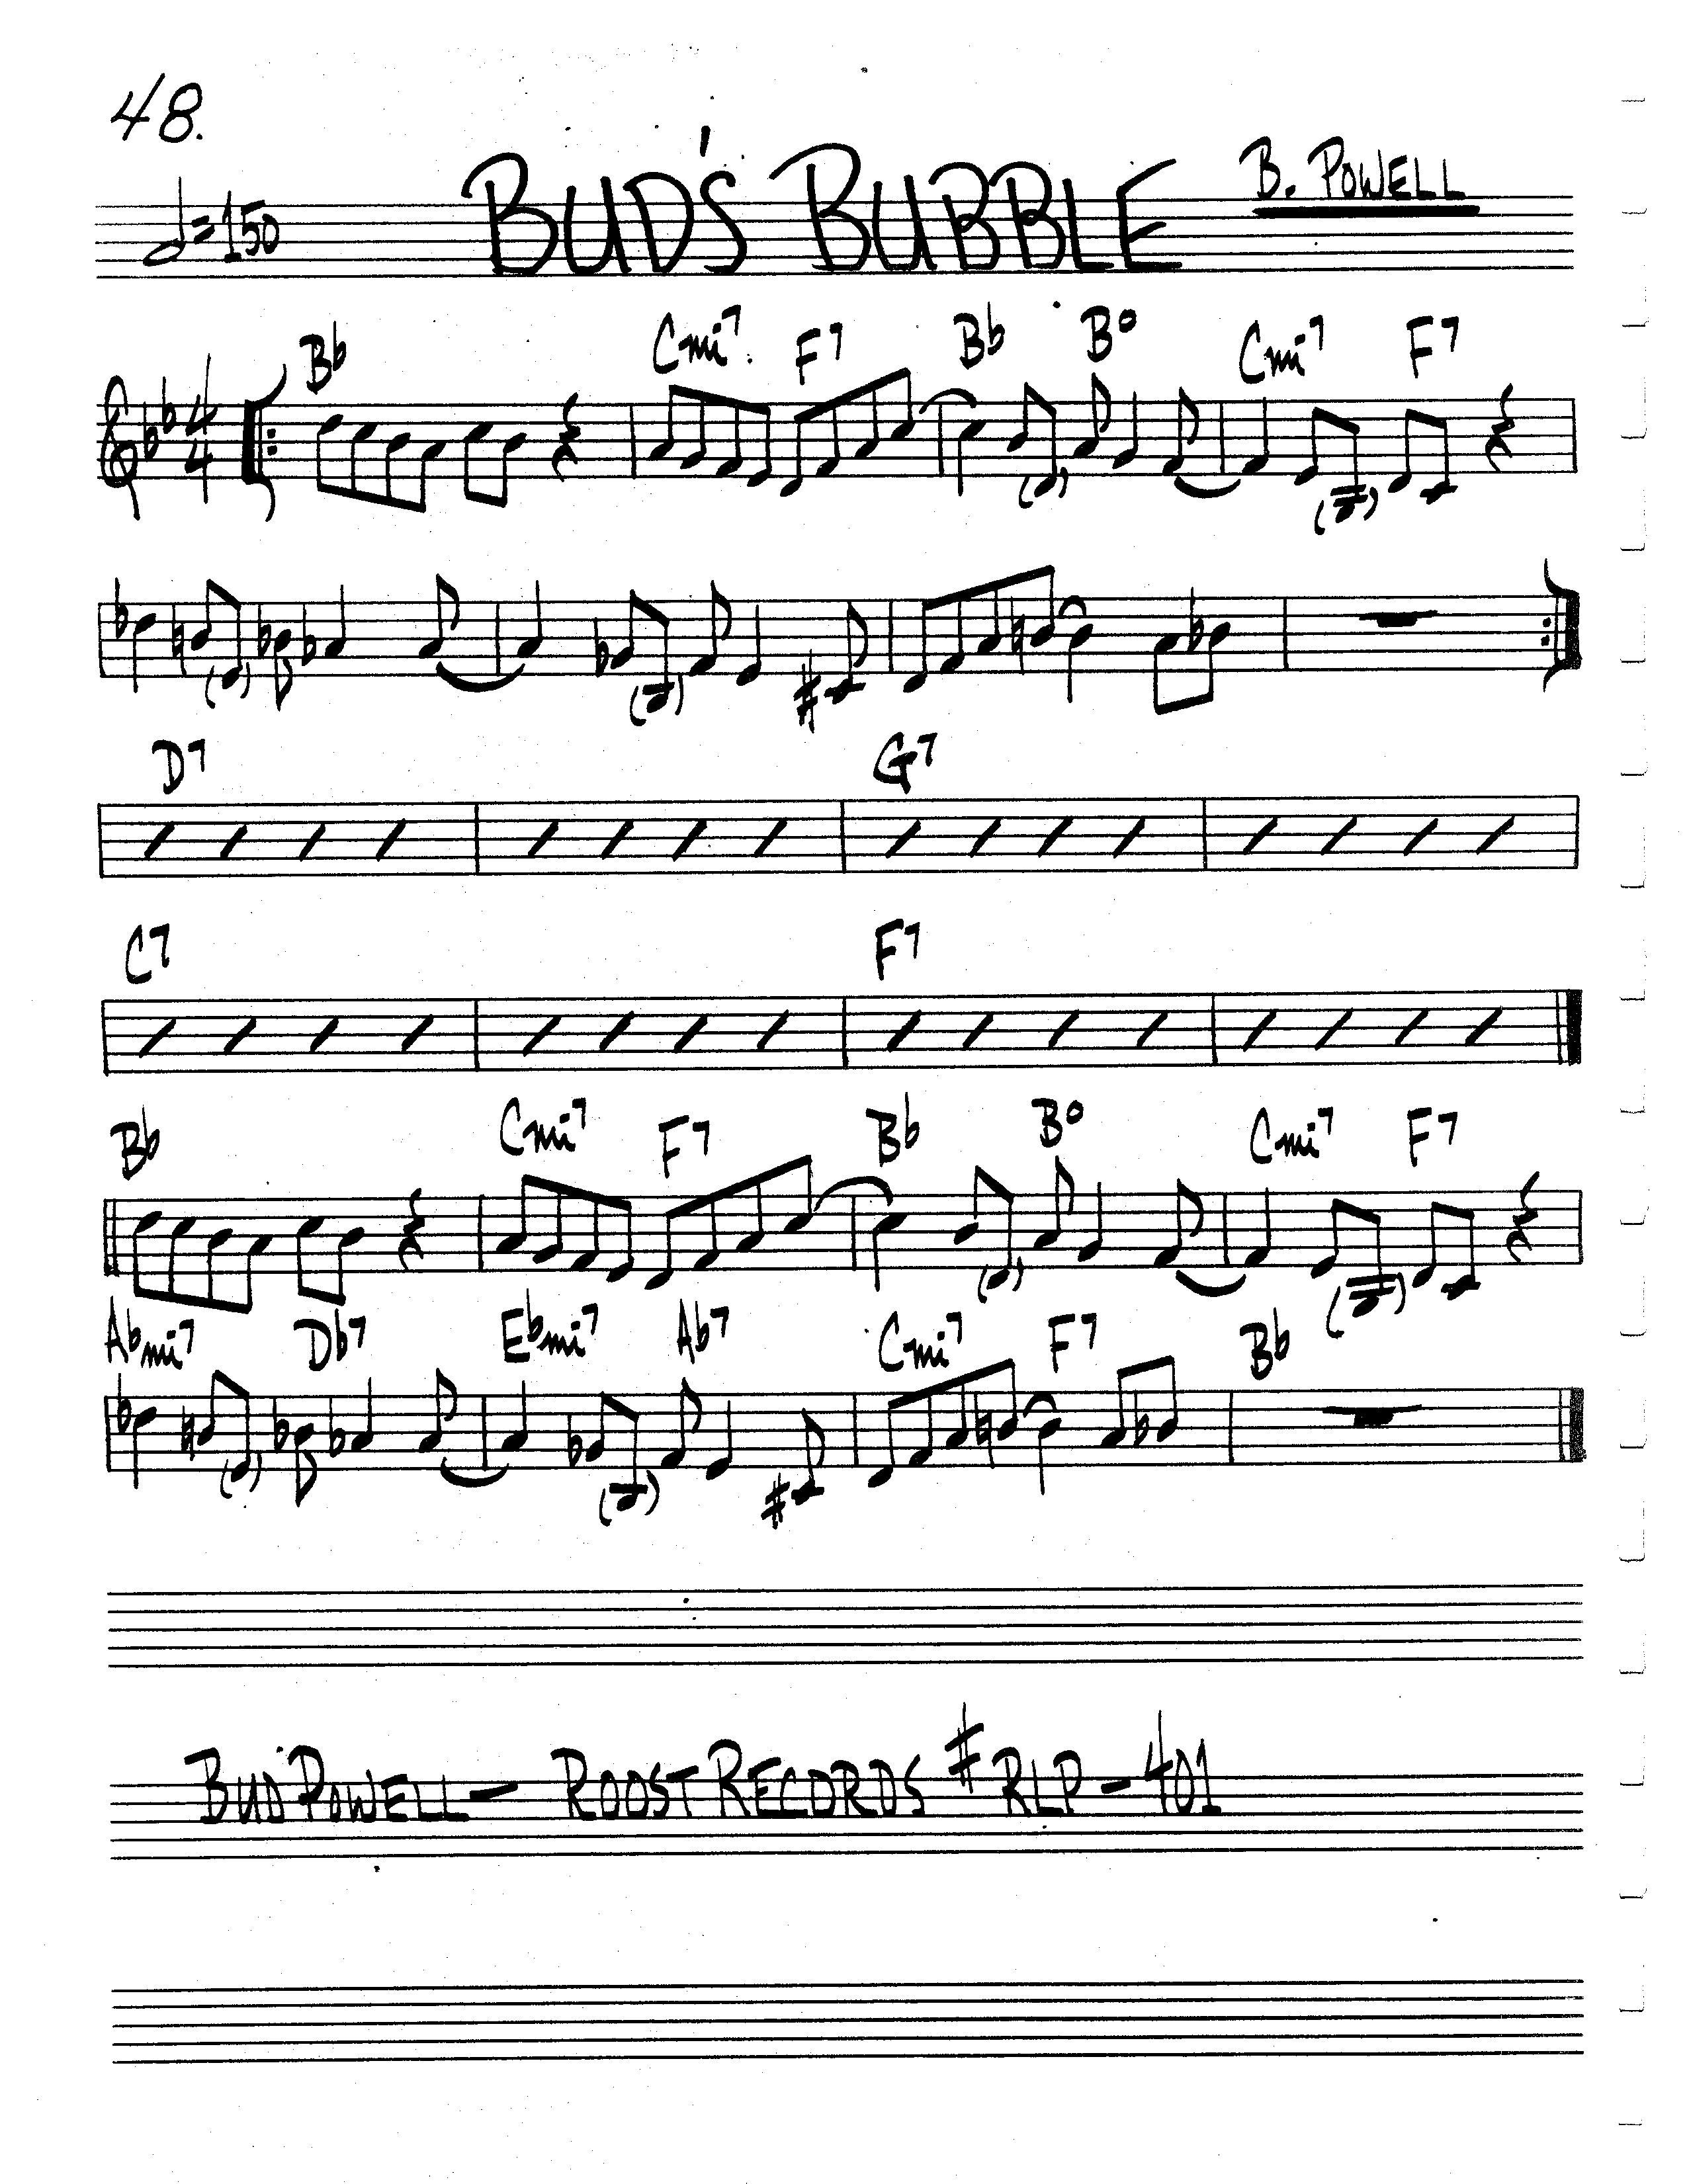 48.
𝅗𝅥=150 BUD'S BUBBLE B. POWELL
Bb Cmi7. F7 Bb Bo Cmi7 F7
4
4
D7 G7
C7 F7
Bb Cmi7 F7 Bb Bo Cmi7 F7
Abmi7 Db7 Ebmi7 Ab7 Cmi7 F7 Bb
BUD POWELL - ROOST RECORDS #RLP-401